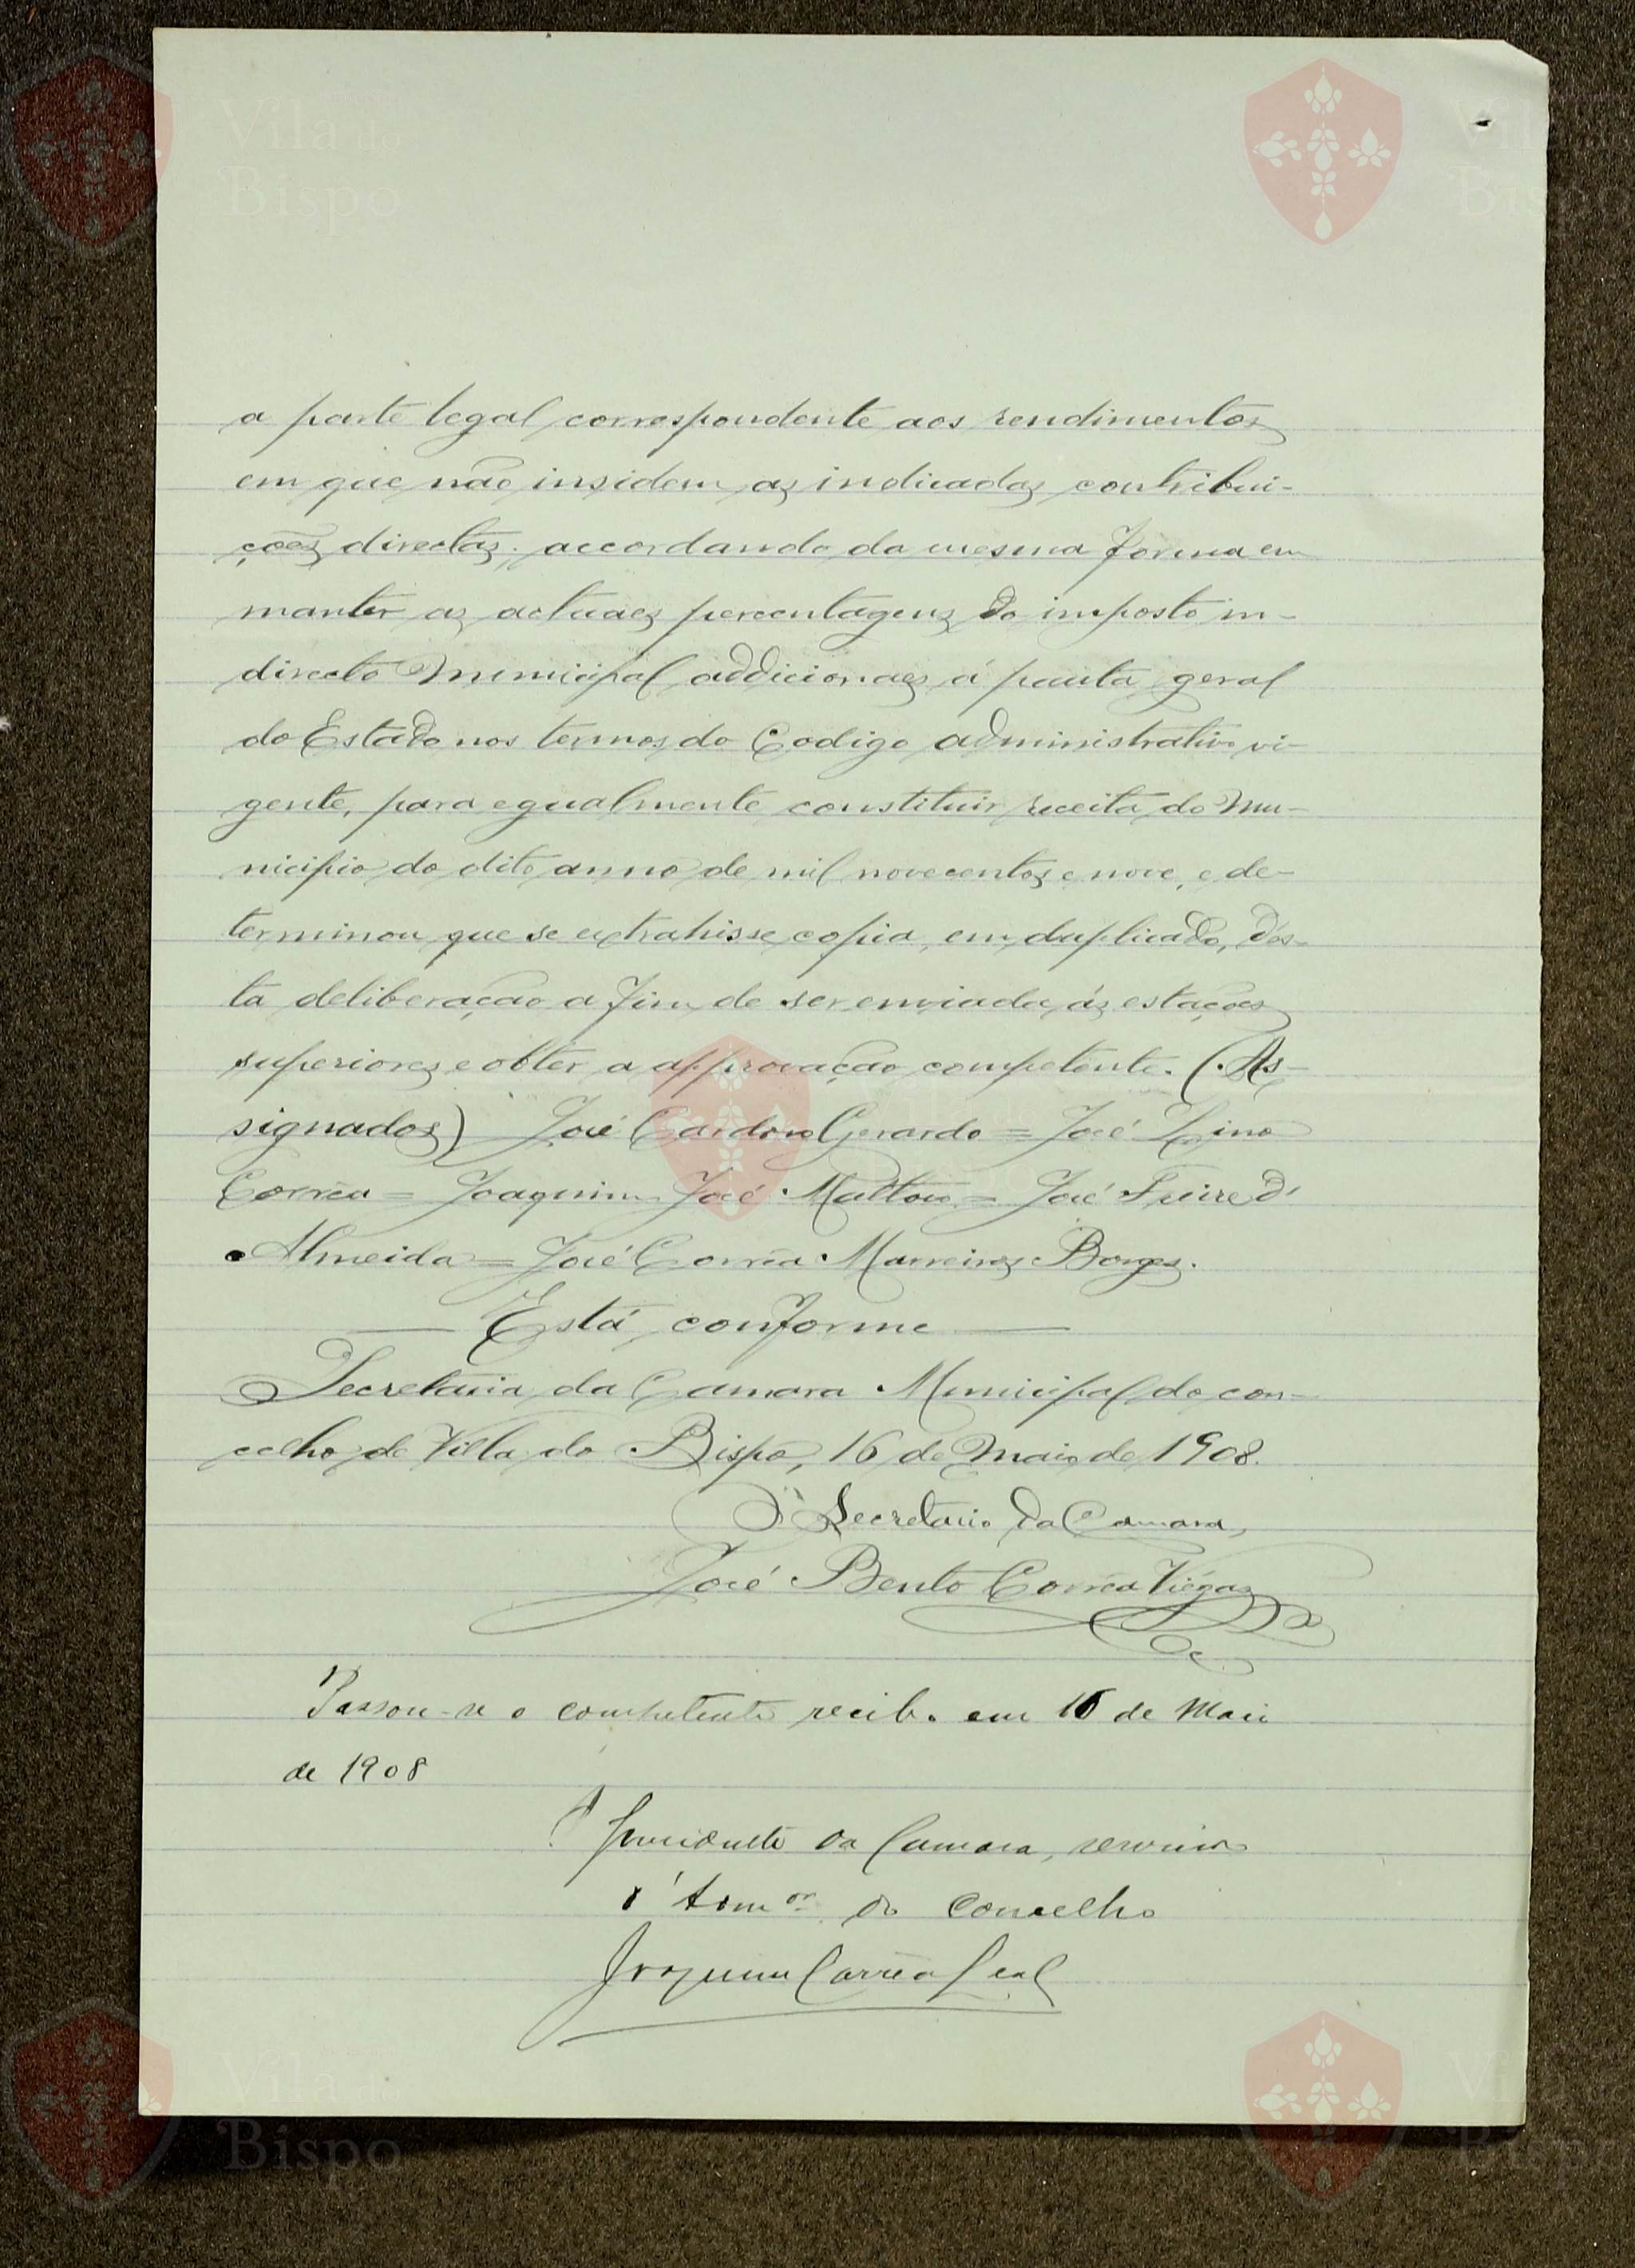 a parte legal correspondente aos rendimentos
em que não insidem as indicadas contribui-
ções directas; accordando da mesma forma em
manter as actuaes percentagens do imposto in-
directo Municipal addicionaes á pauta geral
do Estado nos termos do Codigo administrativo vi-
gente, para egualmente constituir receita do Mu-
nicipio do dito anno de mil novecentos e nove, e de-
terminou que se extrahisse copia, em duplicado, des-
ta deliberação a fim de ser enviada ás estações
superiores e obter a approvação competente. (As-
signados) José Cardoso Gerardo = José Lino
Corrêa = Joaquim José Mattoso = José Freire d'
Almeida = José Corrêa Marreiros Borges.
Está conforme
Secretaria da Camara Municipal do con-
celho de Villa do Bispo, 16 de Maio de 1908.
O Secretario da Camara,
José Bento Corrêa Viégas
Passou-se o competente recibo em 16 de Maio
de 1908
O Presidente da Camara, servindo
d'Admor do Concelho
Joaquim Corrêa Leal
Vila do
Bispo
Vila do
Bispo